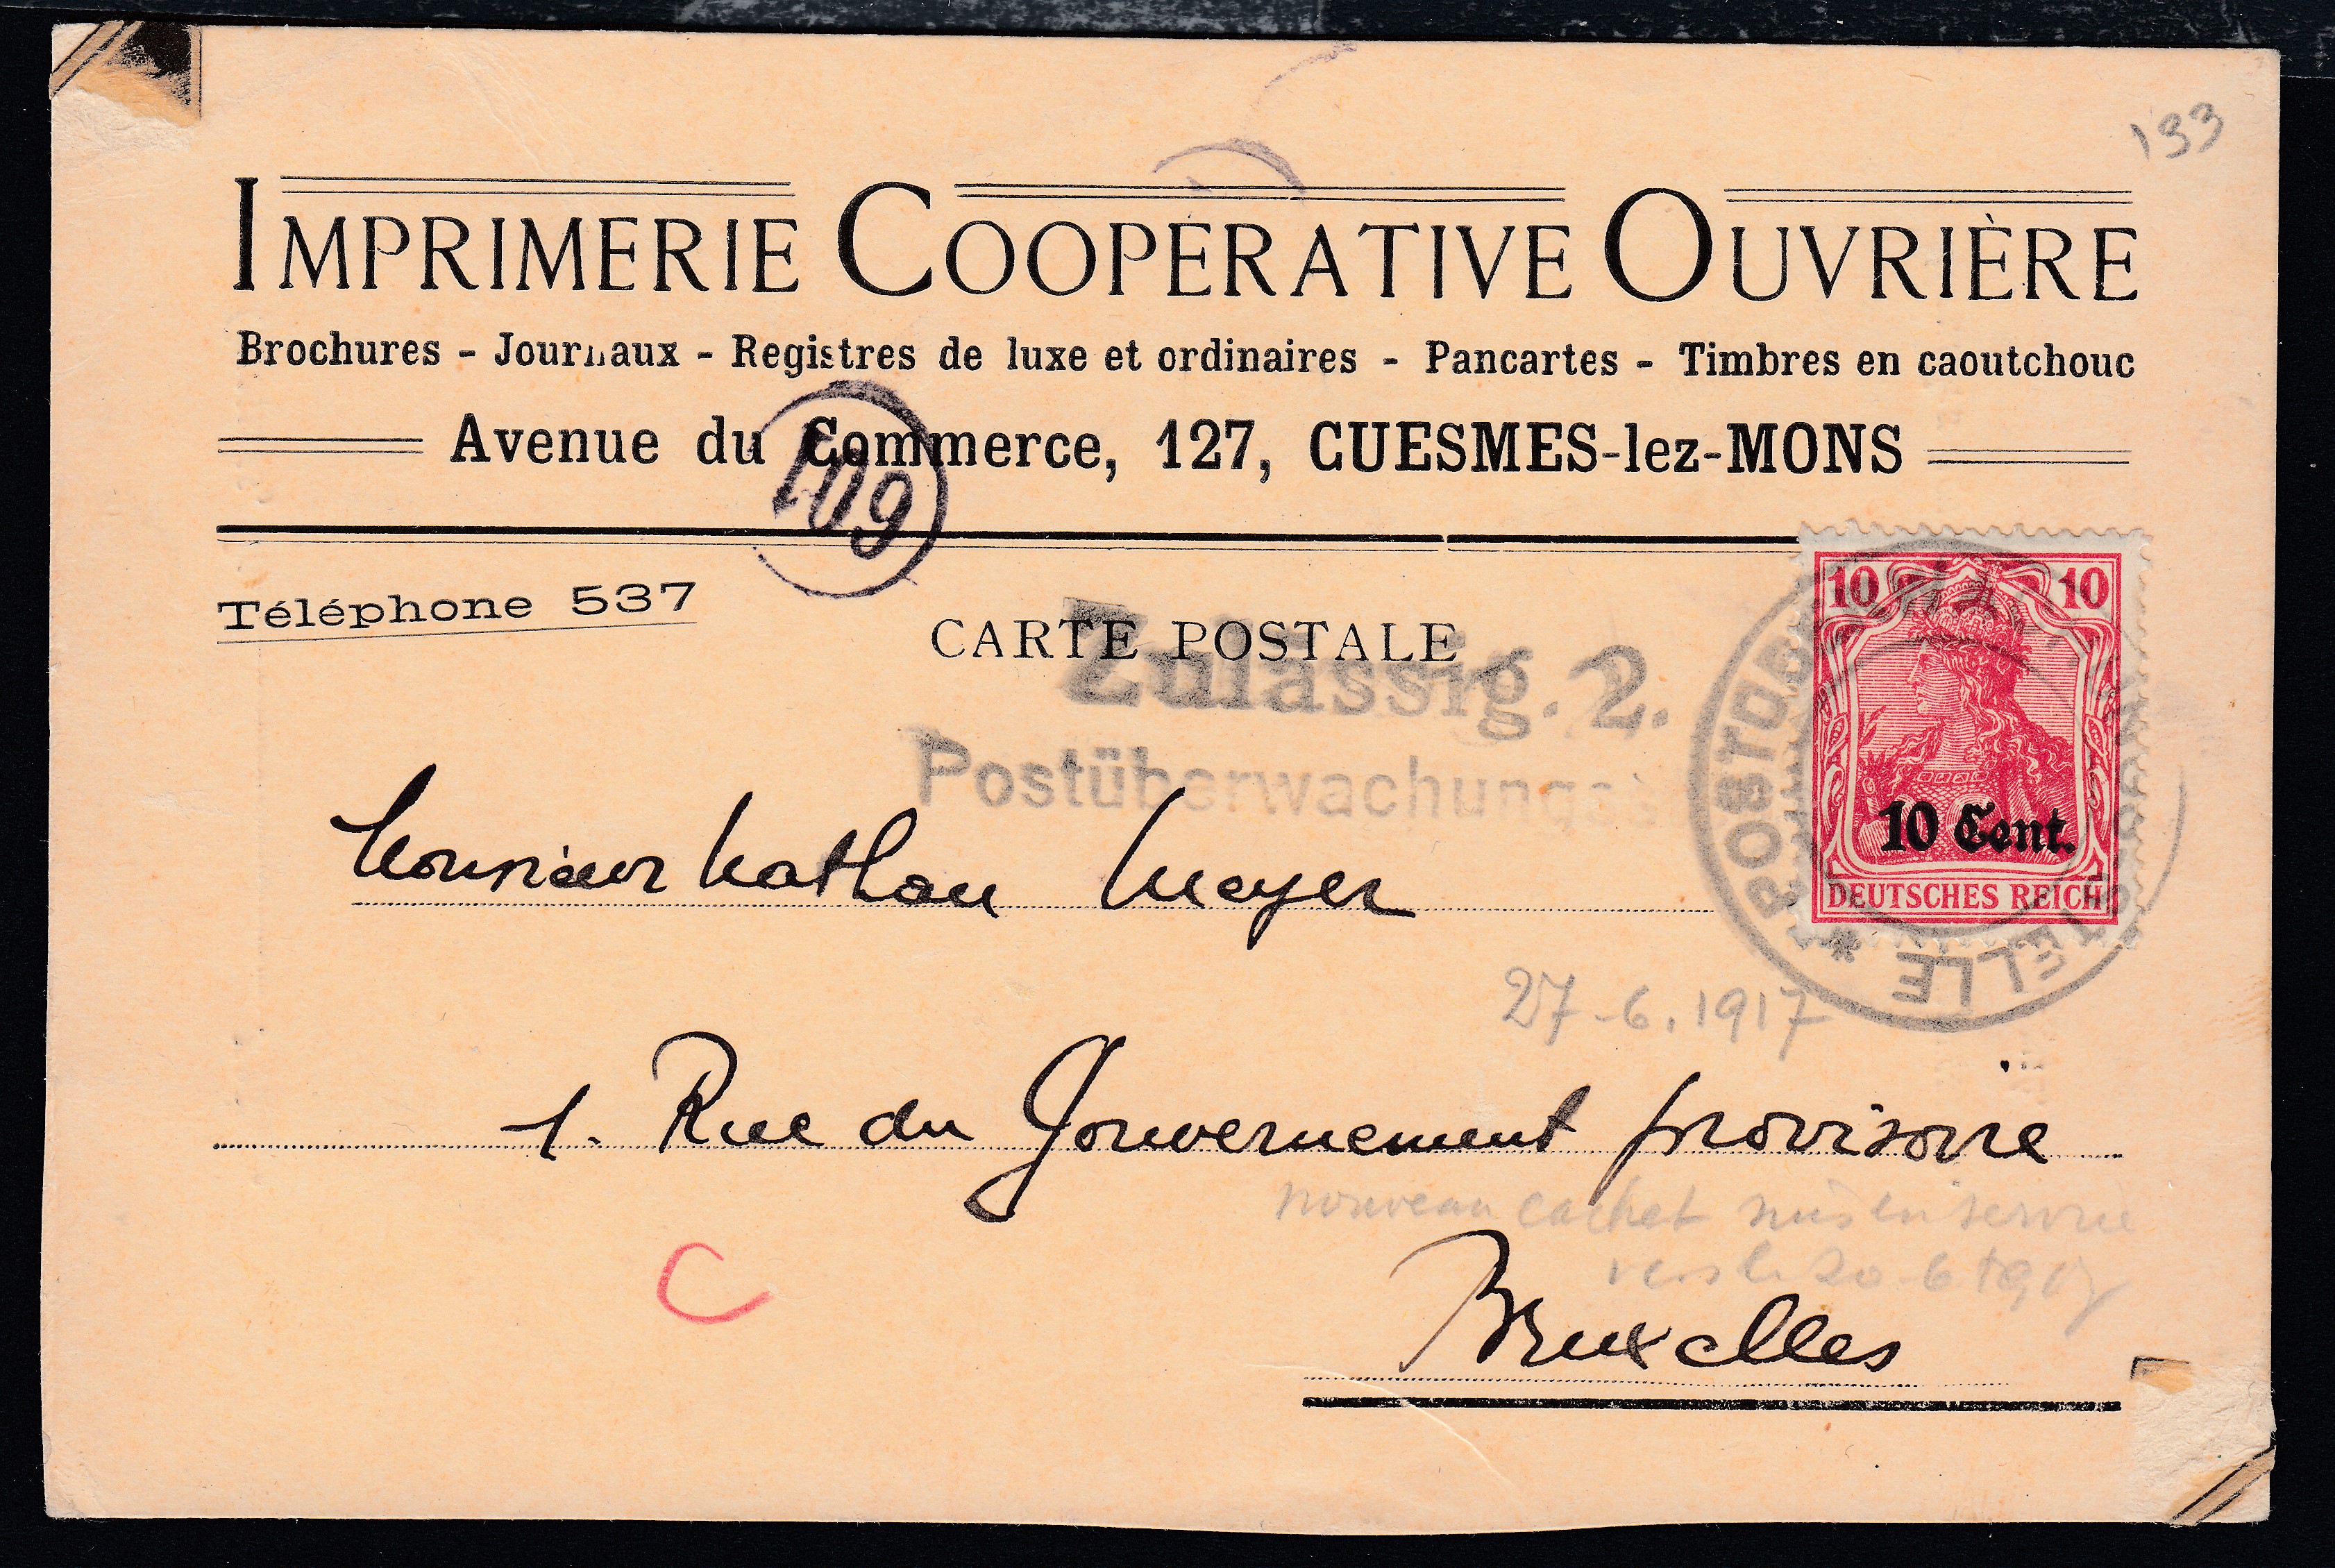 133
IMPRIMERIE COOPÉRATIVE OUVRIÈRE
Brochures - Journaux - Registres de luxe et ordinaires - Pancartes - Timbres en caoutchouc
Avenue du Commerce, 127, CUESMES-lez-MONS
109
Téléphone 537
CARTE POSTALE
Zulässig. 2.
Postüberwachungss
10 10
10 Cent.
DEUTSCHES REICH
Monsieur Nathan Meyer
27-6.1917
1. Rue du Gouvernement provisoire
nouveau cachet mis en service
vers le 20-6 1917
C
Bruxelles